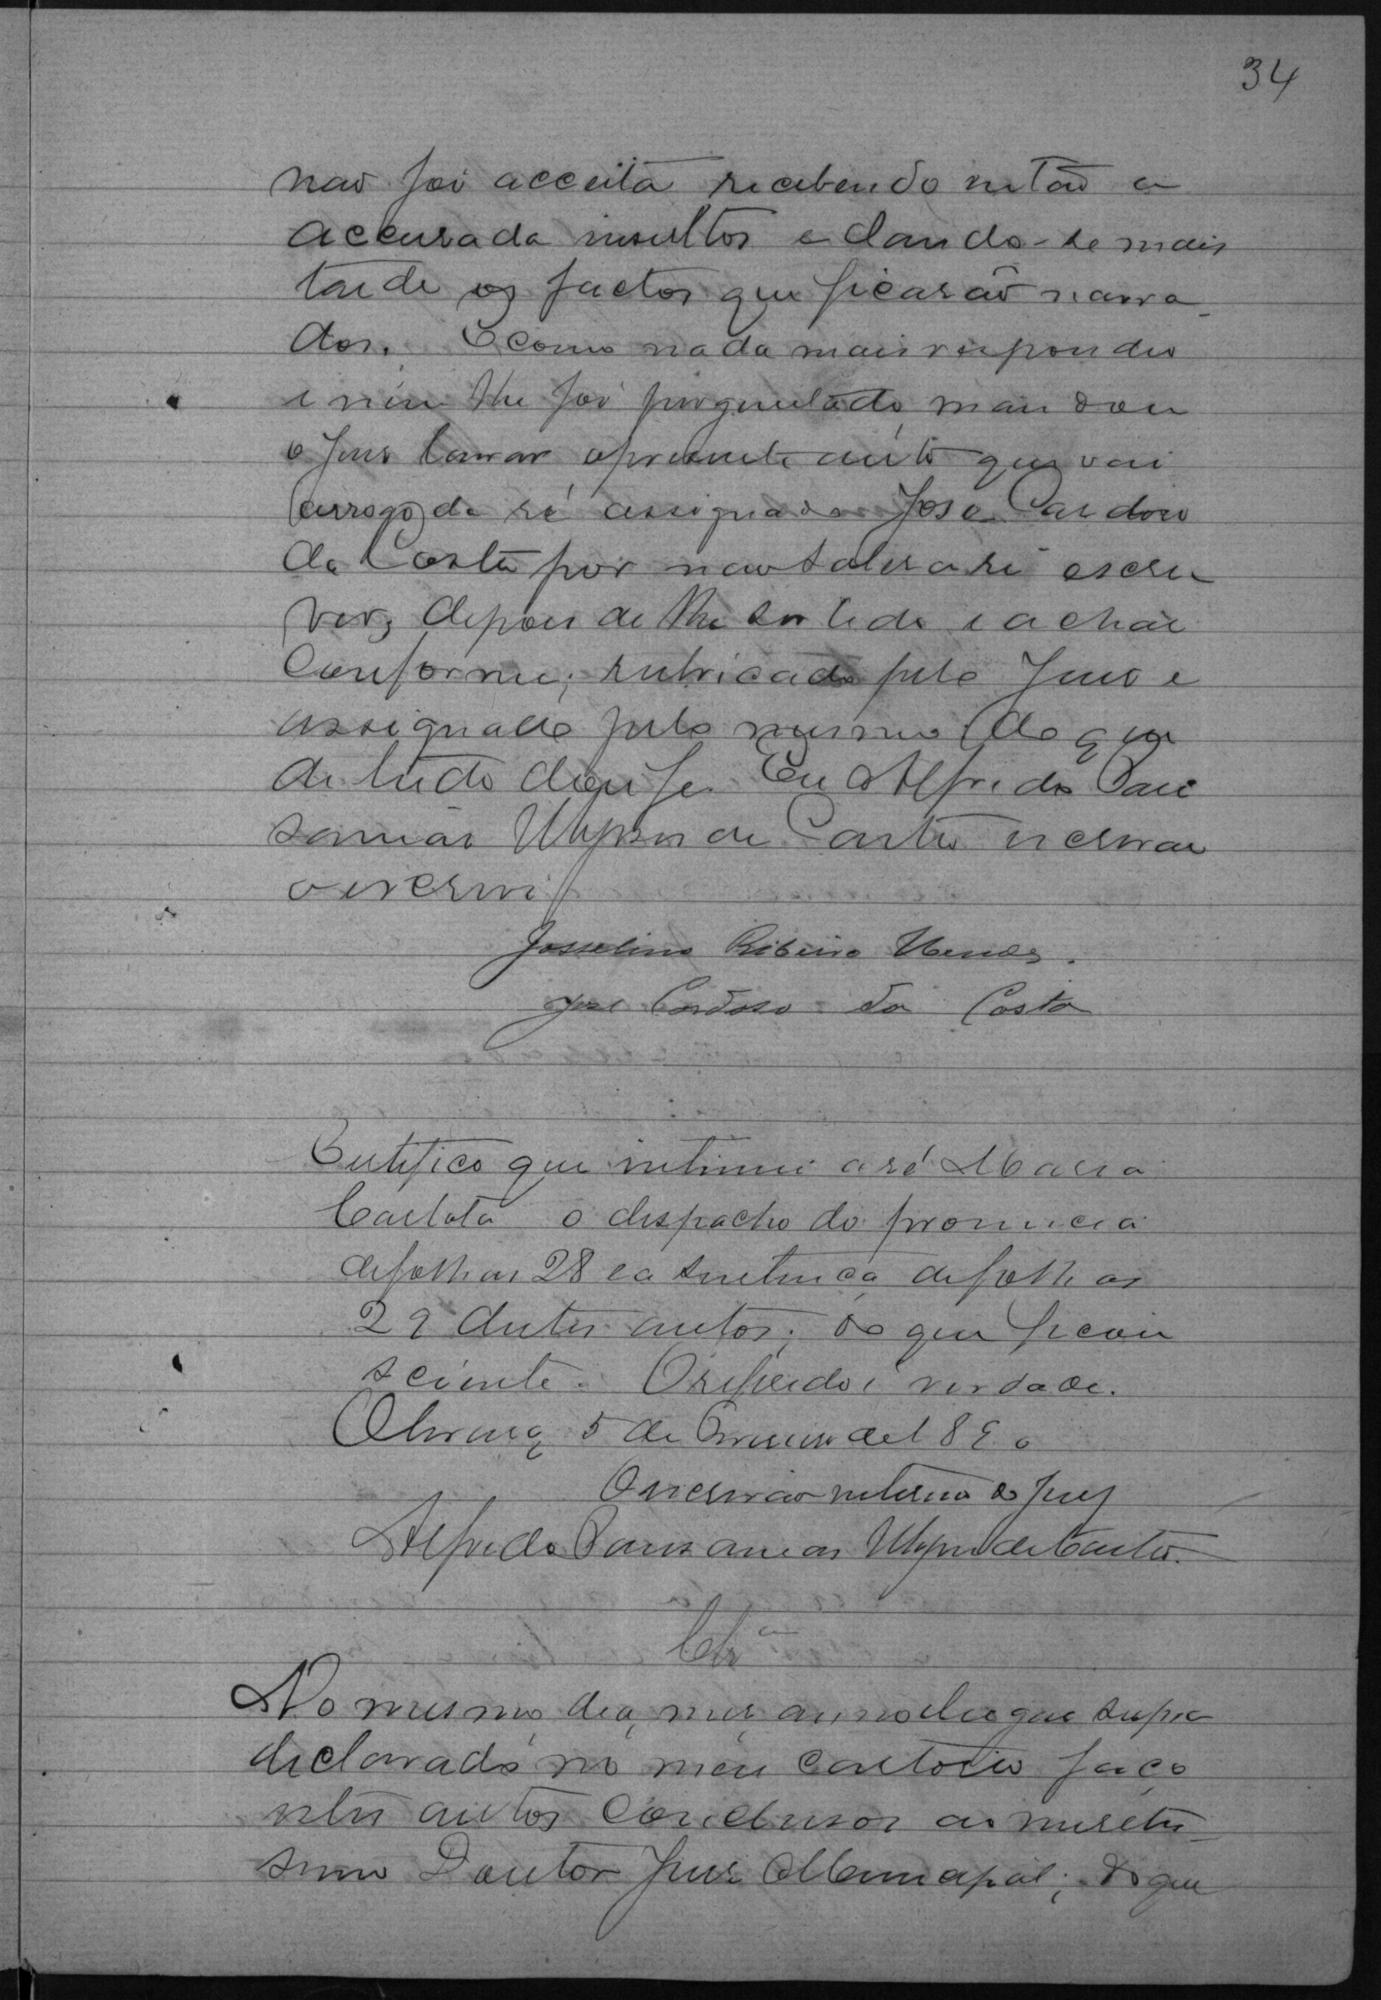 34
não foi acceita recebendo então a
accusada insultos e dando-se mais
tarde os factos que ficarão narra-
dos. E como nada mais respondeu
e nem lhe foi perguntado, mandou
o Juis lavrar o presente auto que vai
(arrogo) da ré assignado José Cardoso
da Costa por não saber a ré escre
ver, depois de lhe ser lido e achar
conforme; rubricado pelo Juis e
assignado pelo mesmo do que
de tudo dou fé. Eu Alfredo Pau
sanias de Castro escrivão
o escrevi
Josselino Ribeiro Mendes.
José Cardoso da Costa
Certifico que intimei a ré Maria
Carlota o despacho de pronuncia
de folhas 28 e a sentença de folhas
29 destes autos; do que ficou
sciente. O referido é verdade.
5 de de 1890
O escrivão interino do Jury
Alfredo Pausanias de Castro.
Clsam
No mesmo dia, mes, anno e lugar supra
declarado no meu cartorio faço
estes autos conclusos ao meretis-
simo Doutor Juis Municipal; do que